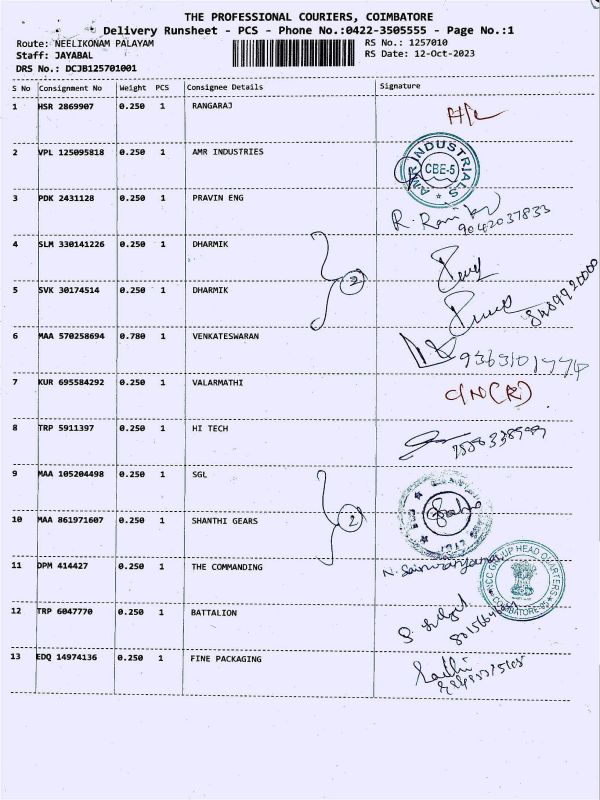 THE PROFESSIONAL COURIERS, COIMBATORE
Delivery Runsheet - PCS - Phone No.:0422-3505555 - Page No.:1
Route: NEELIKONAM PALAYAM RS No.: 1257010
Staff: JAYABAL RS Date: 12-Oct-2023
DRS No.: DCJB125701001
S No Consignment No Weight PCS Consignee Details Signature
1 HSR 2869907 0.250 1 RANGARAJ
2 VPL 125095818 0.250 1 AMR INDUSTRIES
AMR INDUSTRIALS CBE-5
3 PDK 2431128 0.250 1 PRAVIN ENG
9042037833
4 SLM 330141226 0.250 1 DHARMIK
2
5 SVK 30174514 0.250 1 DHARMIK
6 MAA 570258694 0.780 1 VENKATESWARAN
7 KUR 695584292 0.250 1 VALARMATHI
8 TRP 5911397 0.250 1 HI TECH
9 MAA 105204498 0.250 1 SGL
2
10 MAA 861971607 0.250 1 SHANTHI GEARS
11 DPM 414427 0.250 1 THE COMMANDING
NCC GROUP HEAD QUARTERS COIMBATORE
12 TRP 6047770 0.250 1 BATTALION
13 EDQ 14974136 0.250 1 FINE PACKAGING